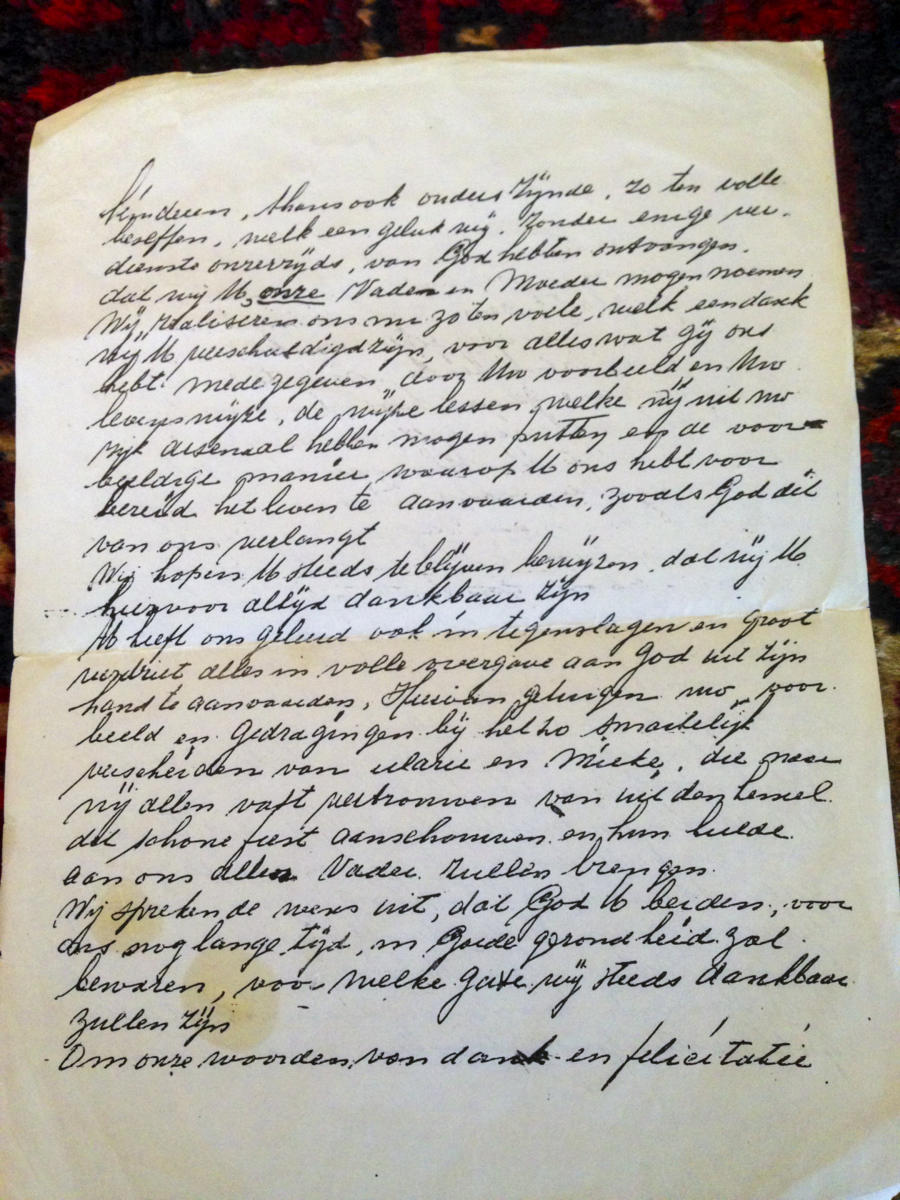 Kinderen, thans ook ouders zijnde, zo ten volle
beseffen, welk een geluk wij, zonder enige ver-
dienste onzerzijds, van God hebben ontvangen,
dat wij U, onze Vader en Moeder mogen noemen
Wij realiseren ons nu zo ten volle, welk een dank
wij U verschuldigd zijn, voor alles wat gij ons
hebt medegegeven door Uw voorbeeld en Uw
levenswijze, de wijze lessen welke wij uit uw
rijk arsenaal hebben mogen putten en de voor-
beeldige manier waarop U ons hebt voor
bereid het leven te aanvaarden, zoals God dit
van ons verlangt
Wij hopen U steeds te blijven bewijzen, dat wij U
hiervoor altijd dankbaar zijn
U heeft ons geleerd ook in tegenslagen en groot
verdriet alles in volle overgave aan God uit zijn
hand te aanvaarden, Hiervan getuigen uw voor
beeld en gedragingen bij het zo smartelijk
verscheiden van Marie en Mieke, die naar
wij allen vast vertrouwen van uit den hemel
dit schone feest aanschouwen en hun hulde
aan ons aller Vader zullen brengen.
Wij spreken de wens uit, dat God U beiden, voor
ons nog lange tijd, in goede gezondheid zal
bewaren, voor welke gave wij steeds dankbaar
zullen zijn
Om onze woorden van dank en felicitatie